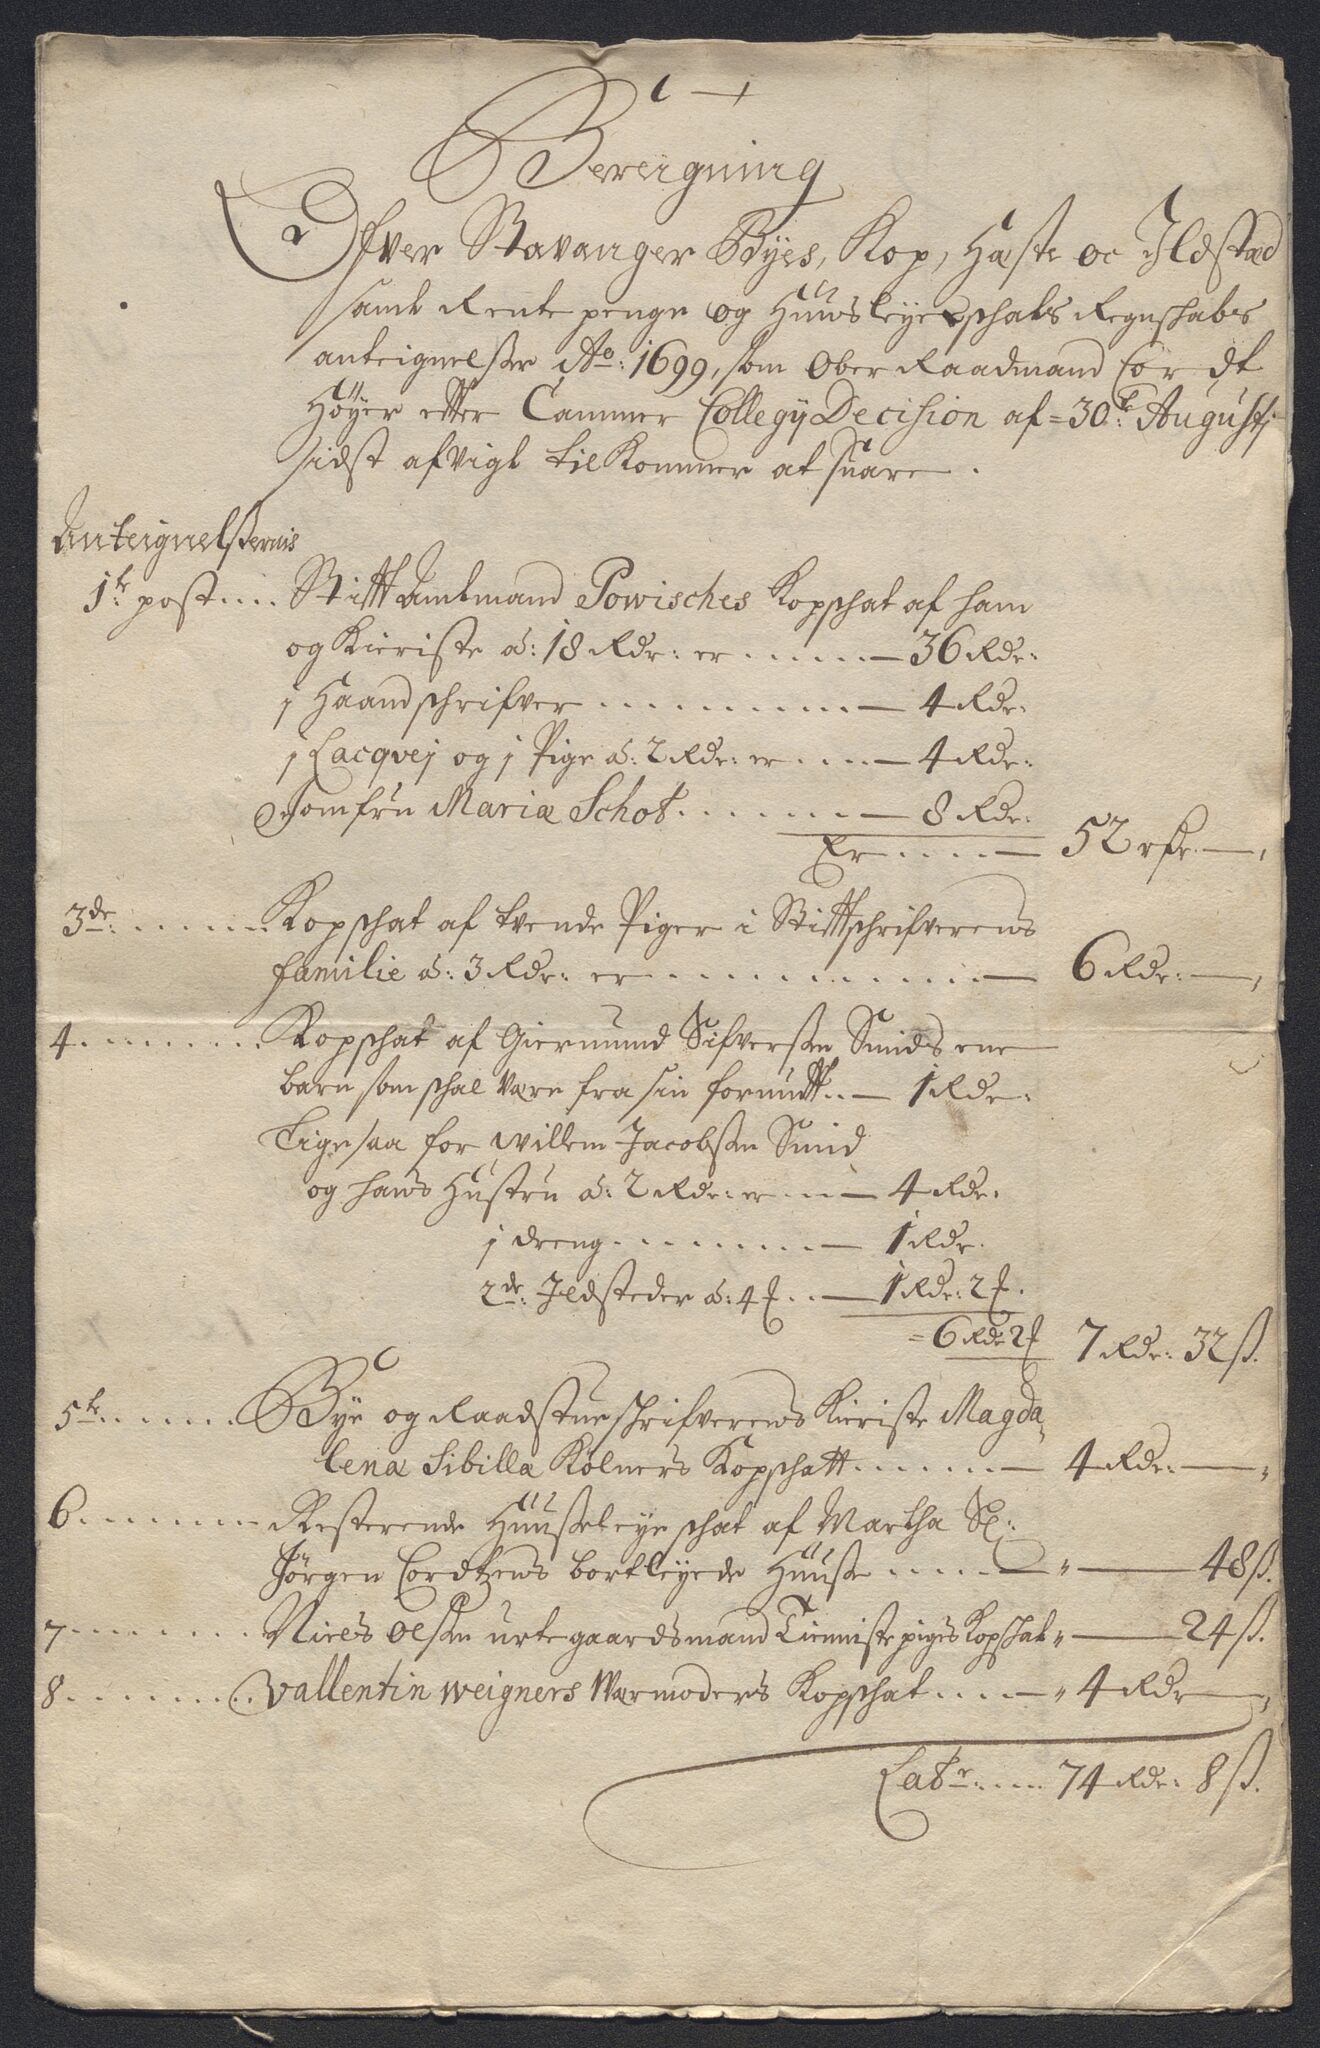 Bereigning
Ofver Stavanger Byes, Kop, Hæste oc Ildstæd
samt Rente penge og Huusleyeschats Regnschabs
anteignelser Ao: 1699, som Ober Raadmand Cør dt
Høyer etter Cammer Collegij Decision af 30te: Augustj
sidst afvigt tilkommer at suare.
Anteignelsernis
1te post .... Stifft Amtmand Powisches Kopschat af ham
og Kieriste a: 18 Rdr: er ...... 36 Rdr:
j Haandschrifver ......... 4 Rdr:
j Lacqvej og j Pige a: 2 Rdr: er .... 4 Rdr:
Jomfru Maria Schot ....... 8 Rdr:
Er ..... 52 rdr.
3de: ...... Kopschat af tvende Piger i Stifftschrifverens
familie a: 3 Rdr: er ............ 6 Rdr:
4 ........ Kopschat af Giermund Sifversen Smids ene
barn som schal være fra sin fornufft .. 1 Rdr:
Ligesaa for Willem Jacobsen Smid
og hans Hustru a: 2 Rdr: er .... 4 Rdr:
j dreng ........ 1 Rdr.
2de: Ildsteder a: 4 ... 1 Rdr: 2
= 6 Rdr 2 7 Rdr: 32 ß.
5te ...... Bye og Raadstueschrifverens Kieriste Magda
lena Sibilla Kølners Kopschatt ....... 4 Rdr:
6 ....... Resterende Huusleye schat af Martha Sl:
Jørgen Cordtzens bortleyede Huuse ..... " 48 ß.
7 ........ Niels Olsen urtegaardsmand Tienniste piges Kopschat " 24 ß.
8 ........ Vallentin Weigners Værmoders Kopschat .... " 4 Rdr
Latr ..... 74 Rdr: 8 ß.